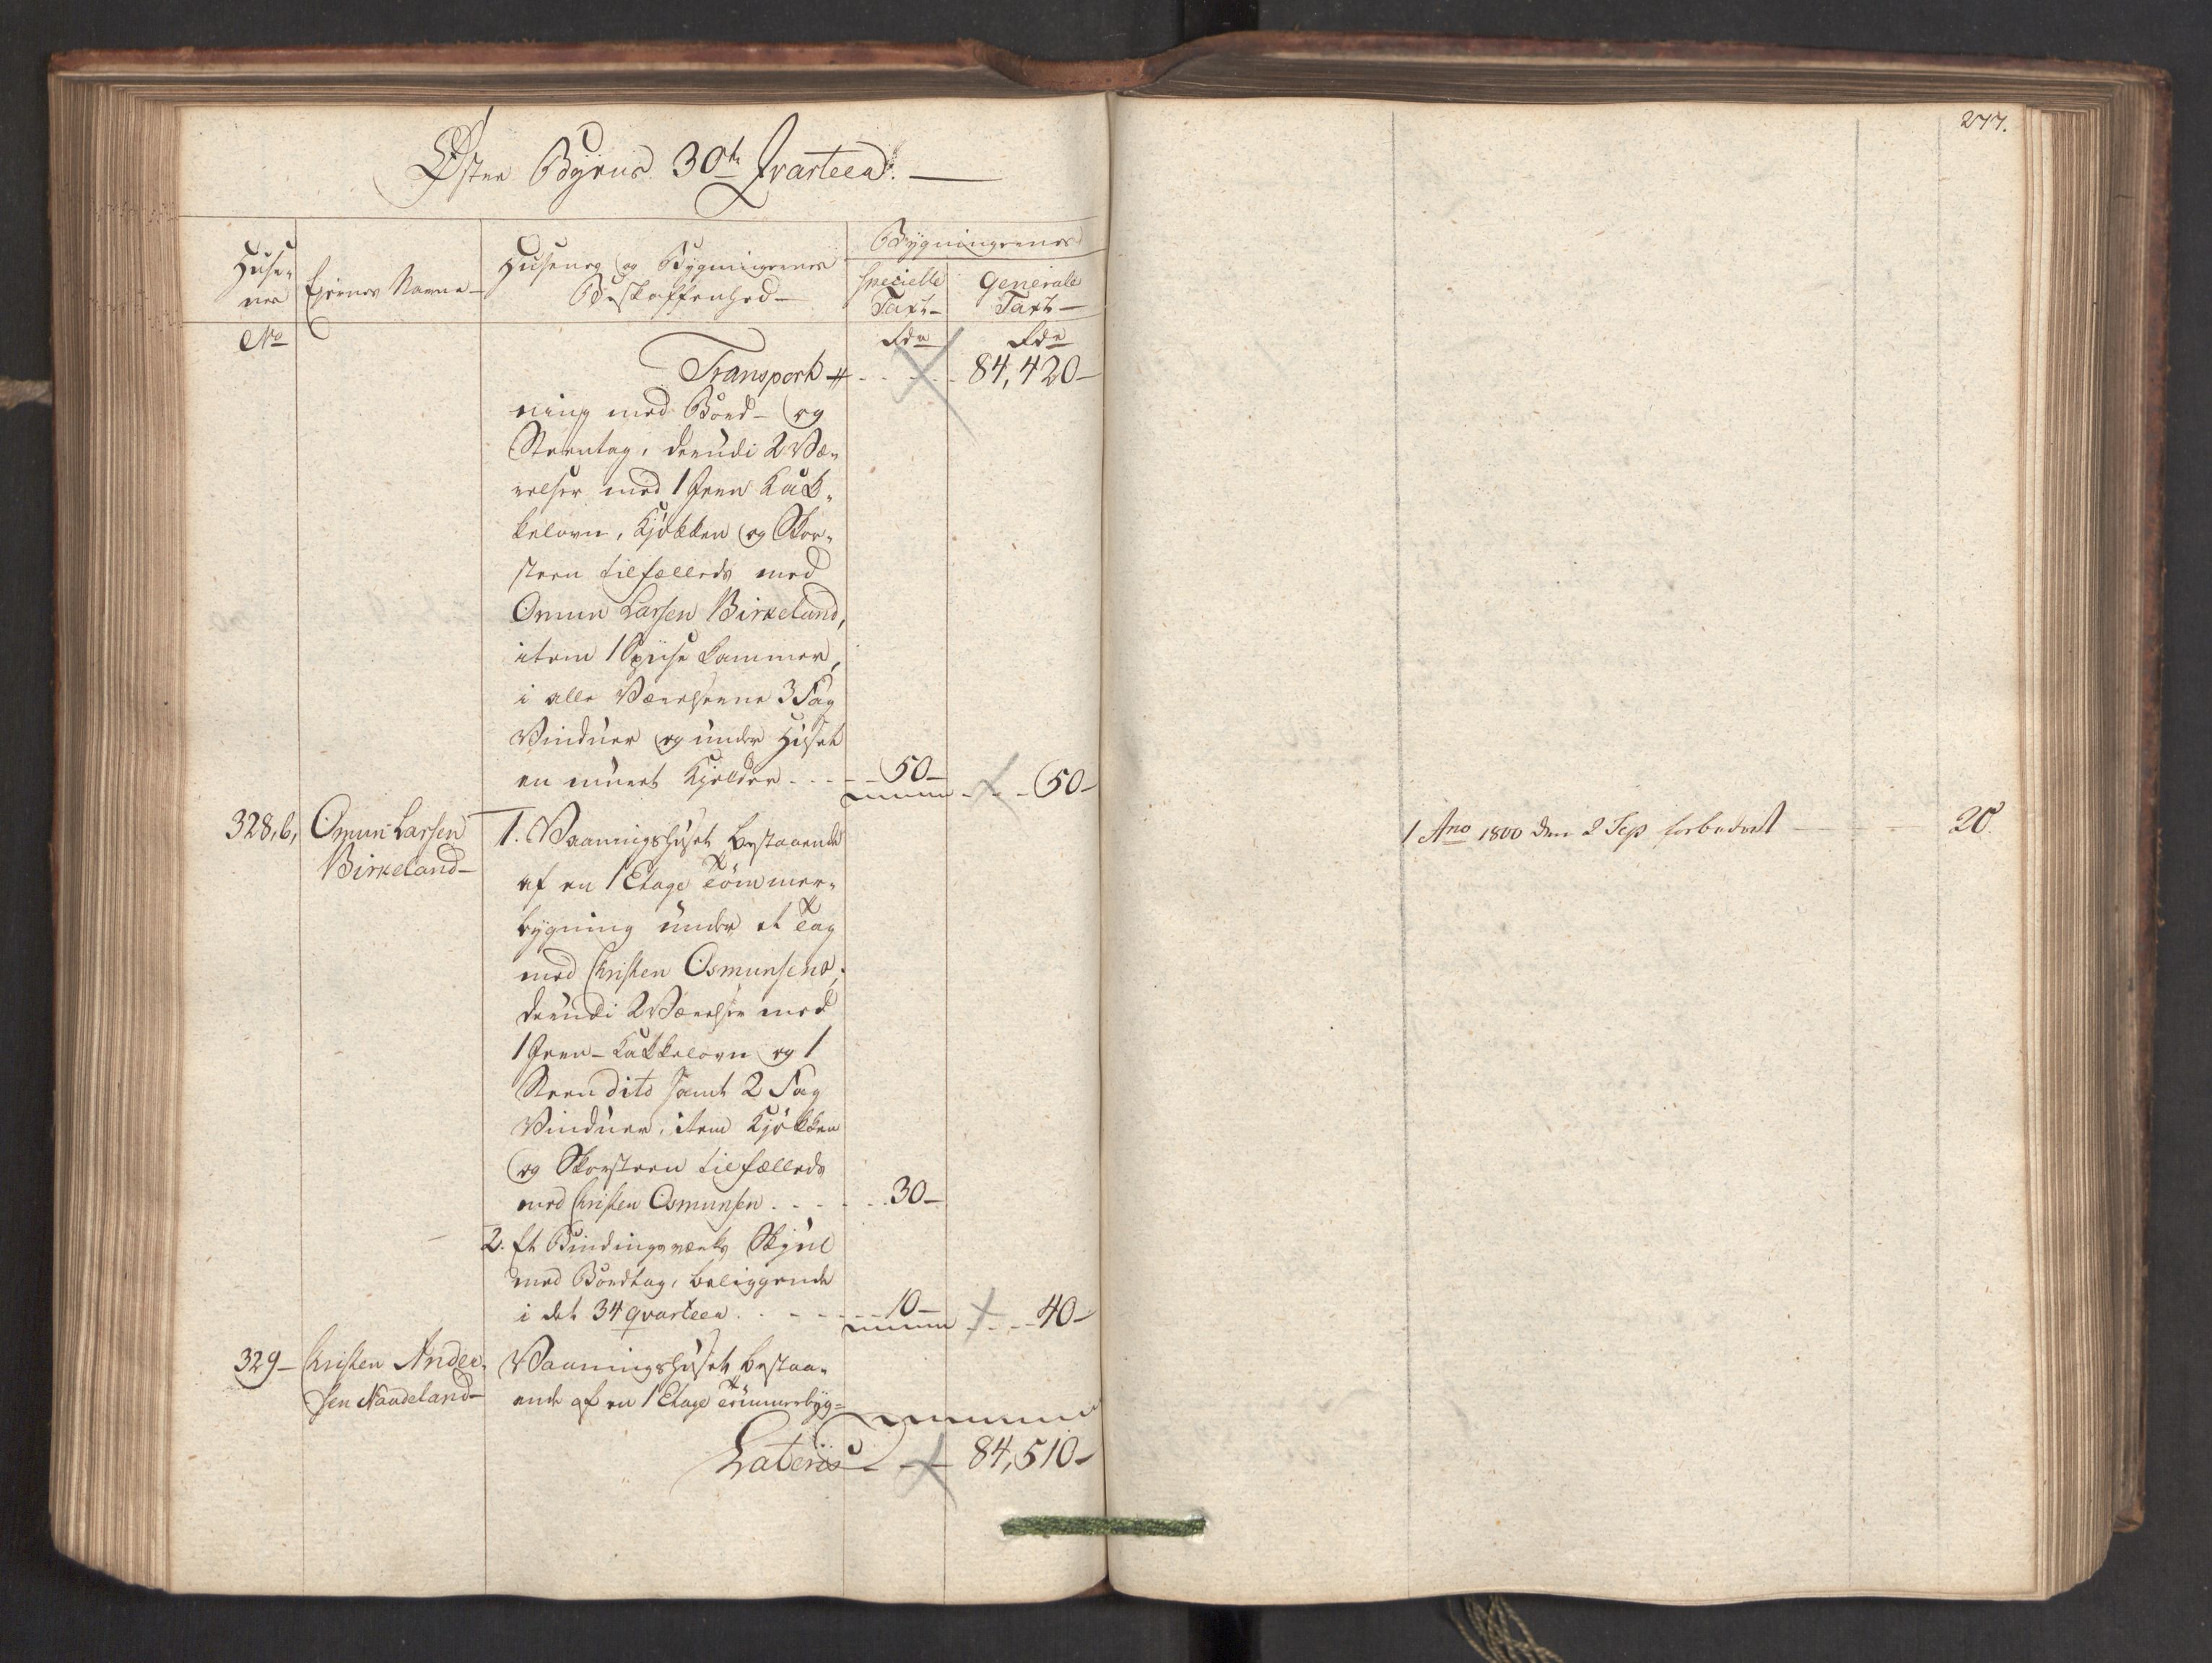 Øster Byens 30te Qvarteer.
Huse-
nes
No
Eiernes Navne
Husenes og Bygningernes
Beskaffenhed
Bygningernes
Specielle
Taxt
Generale
Taxt
Rdr
Rdr
Transport 84,420
ning med Bord- og
Steentag, derudi 2 Væ-
relser med 1 Jern Kak-
kelovn, Kjøkken og Skor-
steen tilfælleds med
Omun Larsen Birkeland,
item 1 Spiise kammer,
i alle Værelserne 3 Fag
Vinduer og under Huset
en muret Kjelder 50 50
328,b, Omun Larsen
Birkeland
1. Vaaningshuset bestaaende
af en 1 Etage Tømmer-
bygning under et Tag
med Christen Osmunsens,
derudi 2 Værelser med
1 Jern-Kakkelovn og 1
Steen dito samt 2 Fag
Vinduer, item Kjøkken
og Skorsteen tilfælleds
med Christen Osmunsen 30
2. Et Bindingsværks Skjul
med Bordtag, beliggende
i det 34 Qvarteer 10 40
329 Christen Ander-
sen Naadeland
Vaaningshuset bestaa-
ende af en 1 Etage Tømmerbyg-
Lateris 84,510
277.
1 Ano 1800 den 2 Sep forbedret 20.